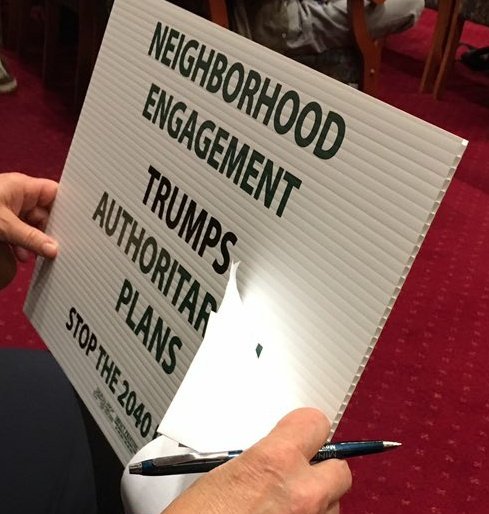 NEIGHBORHOOD
ENGAGEMENT
TRUMPS
AUTHORITAR
PLANS
STOP THE 2040